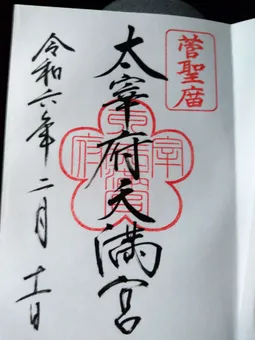 菅聖庿
太宰府天満宮
令和六年二月十一日